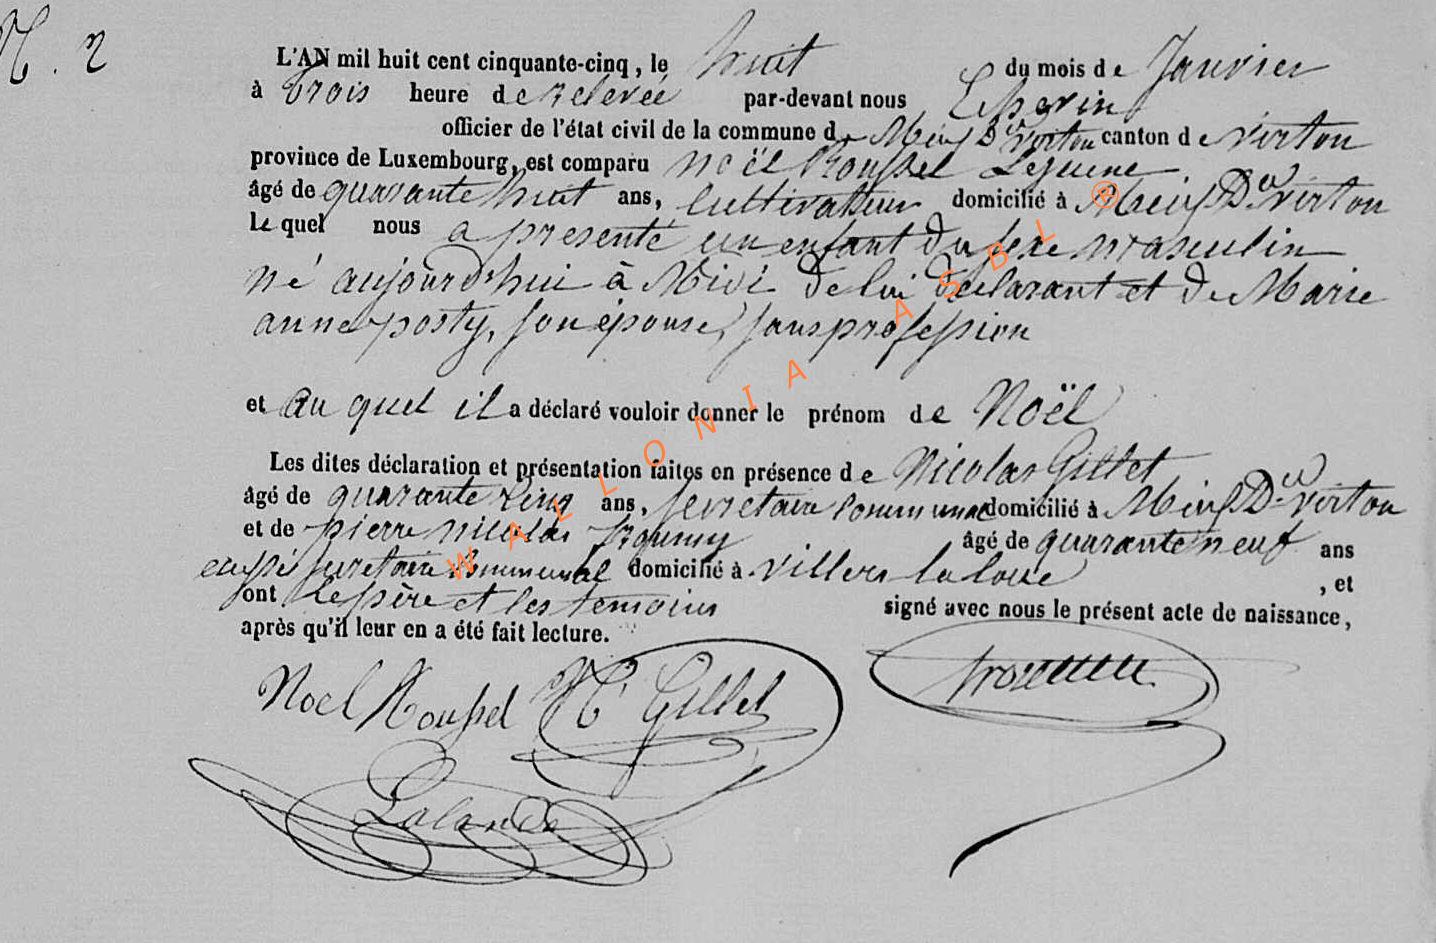 N. 2
L'AN mil huit cent cinquante-cinq, le huit du mois de Janvier
à trois heure de relevée par-devant nous Echevin
officier de l'état civil de la commune de Meix Dt virton canton de virton
province de Luxembourg, est comparu noël Roussel Lejeune
âgé de quarante huit ans, Cultivateur domicilié à Meix Dt virton
le quel nous a presenté un enfant du sexe masculin
né aujourd'hui à Midi de lui déclarant et de Marie
anne posty, son épouse, sans profession
et au quel il a déclaré vouloir donner le prénom de Noël
Les dites déclaration et présentation faites en présence de Nicolas Gillet
âgé de quarante cinq ans, secretaire communal domicilié à Meix Dt virton
et de pierre nicolas âgé de quarante neuf ans
secretaire communal domicilié à villers la loue , et
ont Le père et les temoins signé avec nous le présent acte de naissance,
après qu'il leur en a été fait lecture.
Noel Roussel N Gillet
Lalande
WALLONIA ASBL ®